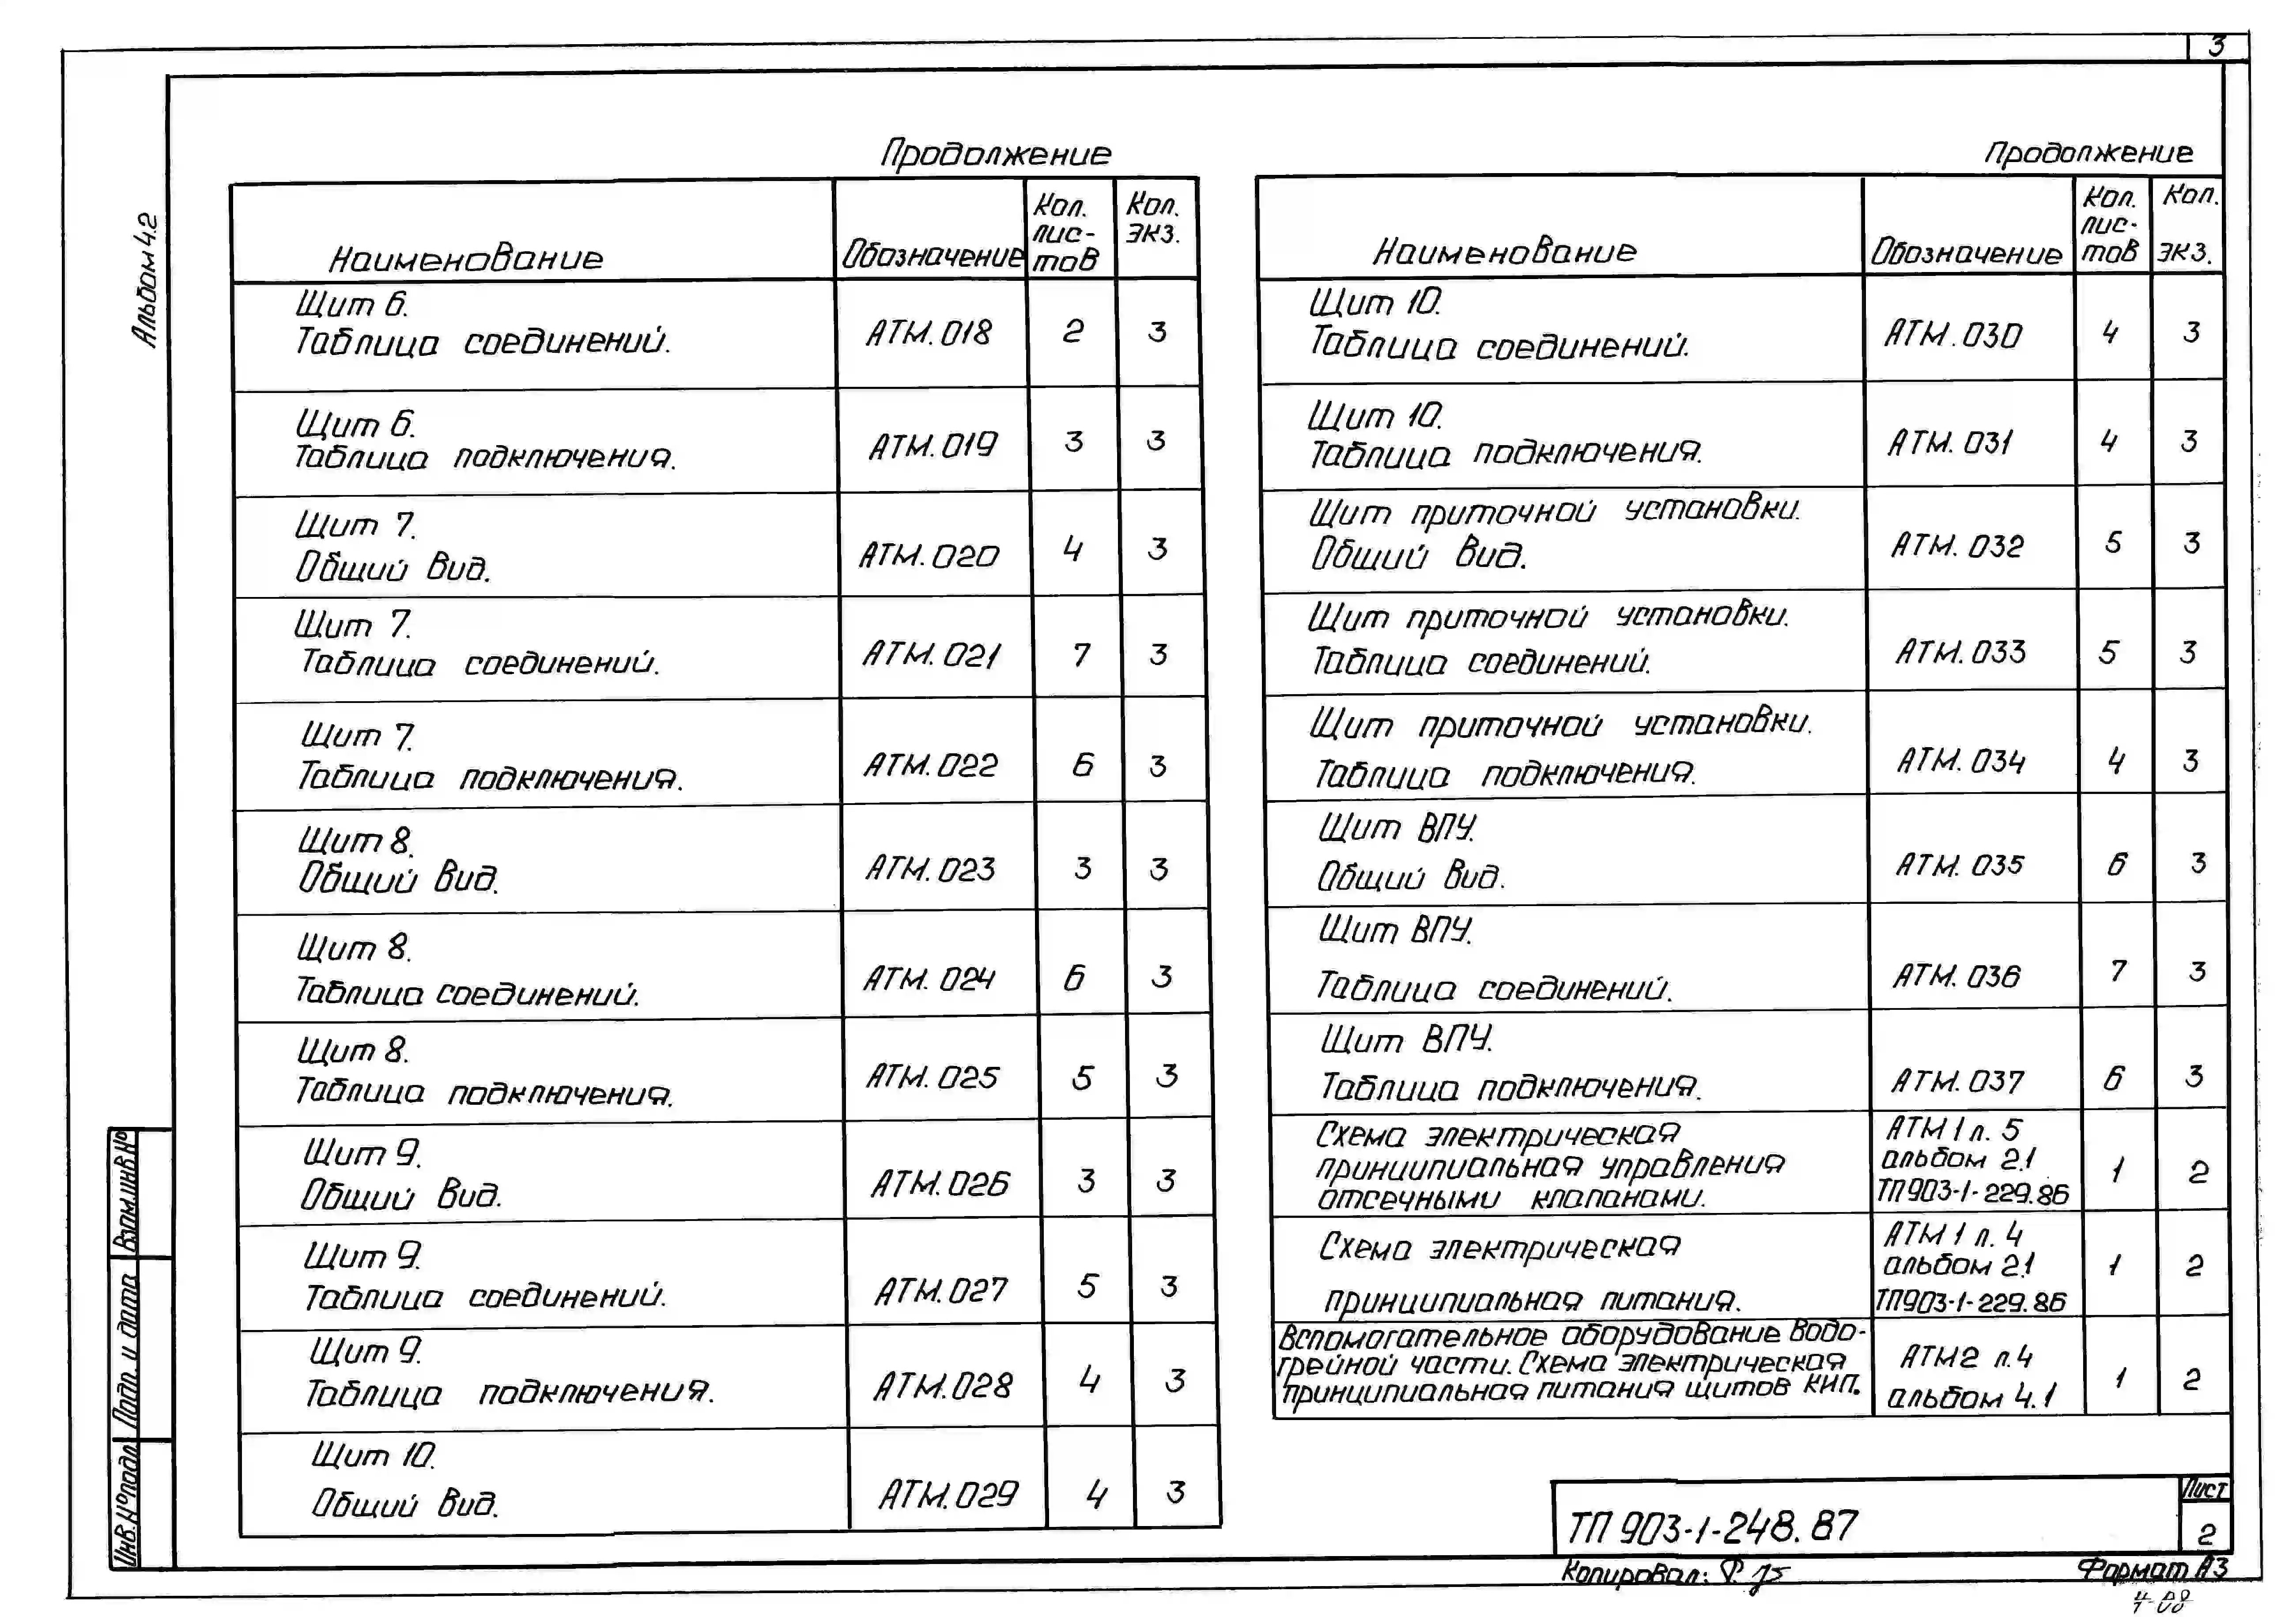 3
Альбом 4.2
Продолжение
Наименование
Обозначение
Кол. лис- тов
Кол. экз.
Щит 6.
Таблица соединений.
АТМ.018
2
3
Щит 6.
Таблица подключения.
АТМ.019
3
3
Щит 7.
Общий вид.
АТМ.020
4
3
Щит 7.
Таблица соединений.
АТМ.021
7
3
Щит 7.
Таблица подключения.
АТМ.022
6
3
Щит 8.
Общий вид.
АТМ.023
3
3
Щит 8.
Таблица соединений.
АТМ.024
6
3
Щит 8.
Таблица подключения.
АТМ.025
5
3
Щит 9.
Общий вид.
АТМ.026
3
3
Щит 9.
Таблица соединений.
АТМ.027
5
3
Щит 9.
Таблица подключения.
АТМ.028
4
3
Щит 10.
Общий вид.
АТМ.029
4
3
Продолжение
Наименование
Обозначение
Кол. лис- тов
Кол. экз.
Щит 10.
Таблица соединений.
АТМ.030
4
3
Щит 10.
Таблица подключения.
АТМ.031
4
3
Щит приточной установки.
Общий вид.
АТМ.032
5
3
Щит приточной установки.
Таблица соединений.
АТМ.033
5
3
Щит приточной установки.
Таблица подключения.
АТМ.034
4
3
Щит ВПУ.
Общий вид.
АТМ.035
6
3
Щит ВПУ.
Таблица соединений.
АТМ.036
7
3
Щит ВПУ.
Таблица подключения.
АТМ.037
6
3
Схема электрическая
принципиальная управления
отсечными клапанами.
АТМ1 л. 5
альбом 2.1
ТП903-1-229.86
1
2
Схема электрическая
принципиальная питания.
АТМ1 л. 4
альбом 2.1
ТП903-1-229.86
1
2
Вспомогательное оборудование водо-
грейной части. Схема электрическая
принципиальная питания щитов КИП.
АТМ2 л.4
альбом 4.1
1
2
Взам.инв.№
Подп. и дата
Инв.№подл.
ТП 903-1-248.87
Лист
2
Копировал:
Формат А3